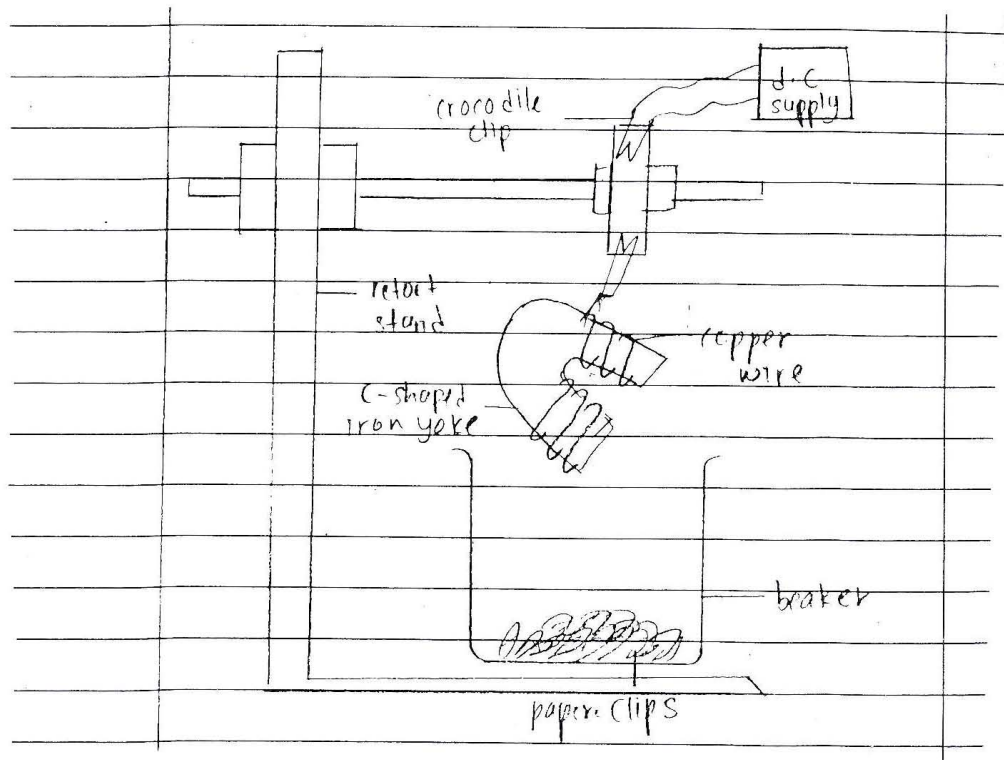 d.c
supply
crocodile
clip
retort
stand
copper
wire
C-shaped
iron yoke
beaker
paper clips